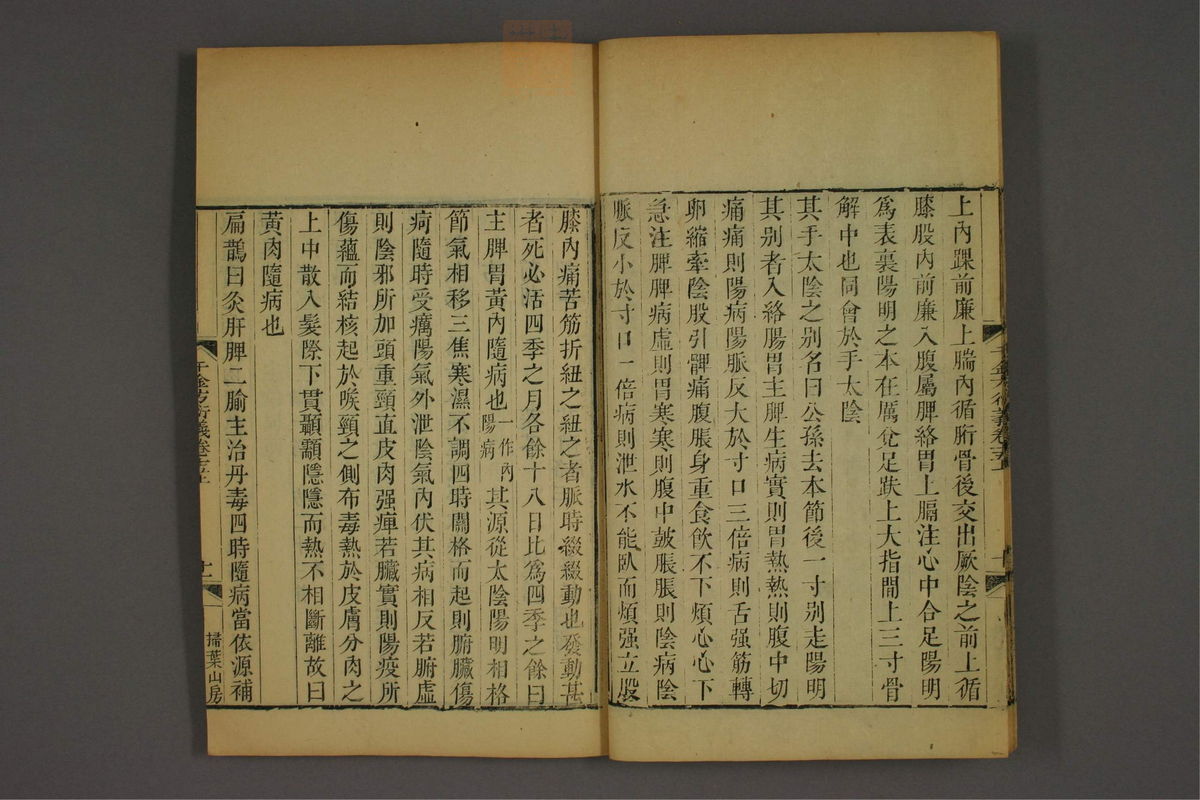 上內踝前廉上腨內循胻骨後交出厥陰之前上循
膝股內前廉入腹屬脾絡胃上膈注心中合足陽明
爲表裏陽明之本在厲兌足趺上大指間上三寸骨
解中也同會於手太陰
其手太陰之別名曰公孫去本節後一寸別走陽明
其別者入絡腸胃主脾生病實則胃熱熱則腹中切
痛痛則陽病陽脈反大於寸口三倍病則舌强筋轉
卵縮牽陰股引髀痛腹脹身重食飲不下煩心心下
急注脾脾病虛則胃寒寒則腹中鼓脹脹則陰病陰
脈反小於寸口一倍病則泄水不能臥而煩强立股
膝內痛苦筋折紐之紐之者脈時綴綴動也發動甚
者死必活四季之月各餘十八日比爲四季之餘曰
主脾胃黃內隨病也一作內陽病其源從太陰陽明相格
節氣相移三焦寒濕不調四時關格而起則腑臟傷
疴隨時受癘陽氣外泄陰氣內伏其病相反若腑虛
則陰邪所加頭重頸直皮肉强痺若臟實則陽疫所
傷蘊而結核起於喉頸之側布毒熱於皮膚分肉之
上中散入髮際下貫顳顬隱隱而熱不相斷離故曰
黃肉隨病也
扁鵲曰灸肝脾二腧主治丹毒四時隨病當依源補
千金方衍義卷十五上
十一
掃葉山房